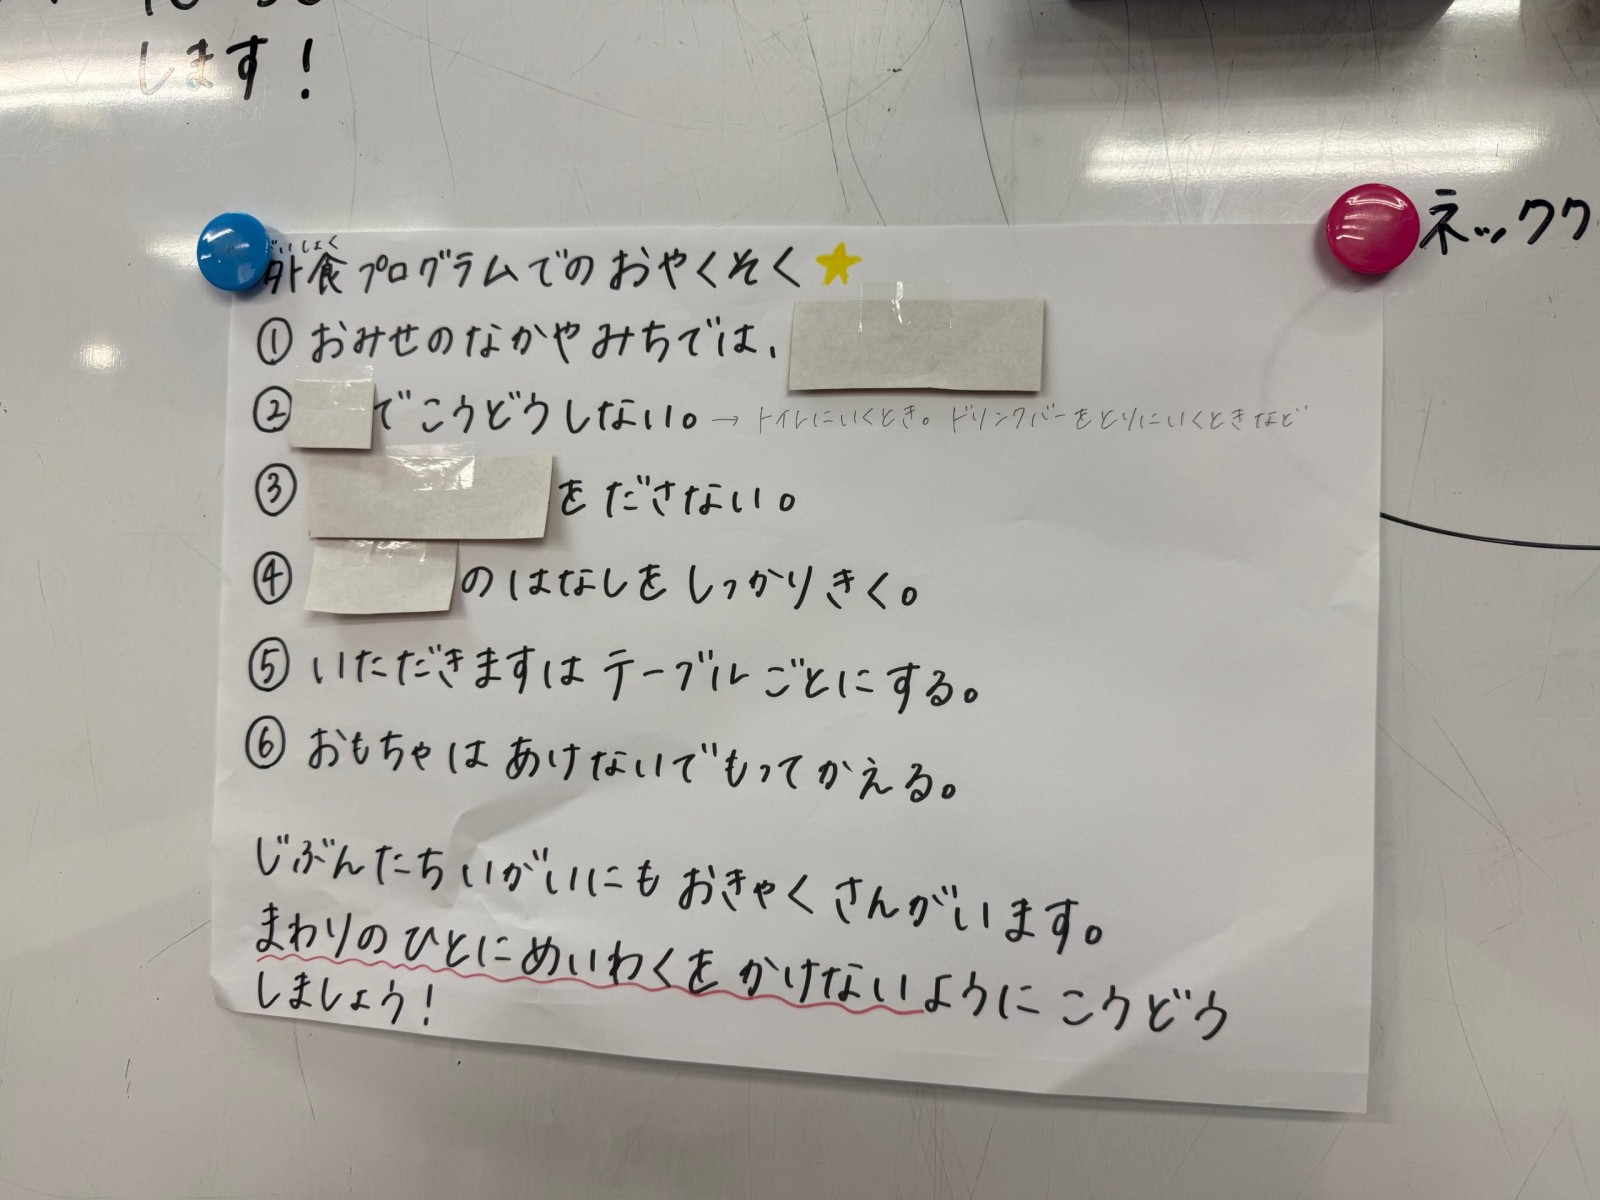 します！
ネックク
がいしょく
外食プログラムでのおやくそく
① おみせのなかやみちでは、
② でこうどうしない。→ トイレにいくとき。ドリンクバーをとりにいくときなど
③ をださない。
④ のはなしをしっかりきく。
⑤ いただきますはテーブルごとにする。
⑥ おもちゃはあけないでもってかえる。
じぶんたちいがいにもおきゃくさんがいます。
まわりのひとにめいわくをかけないようにこうどう
しましょう！